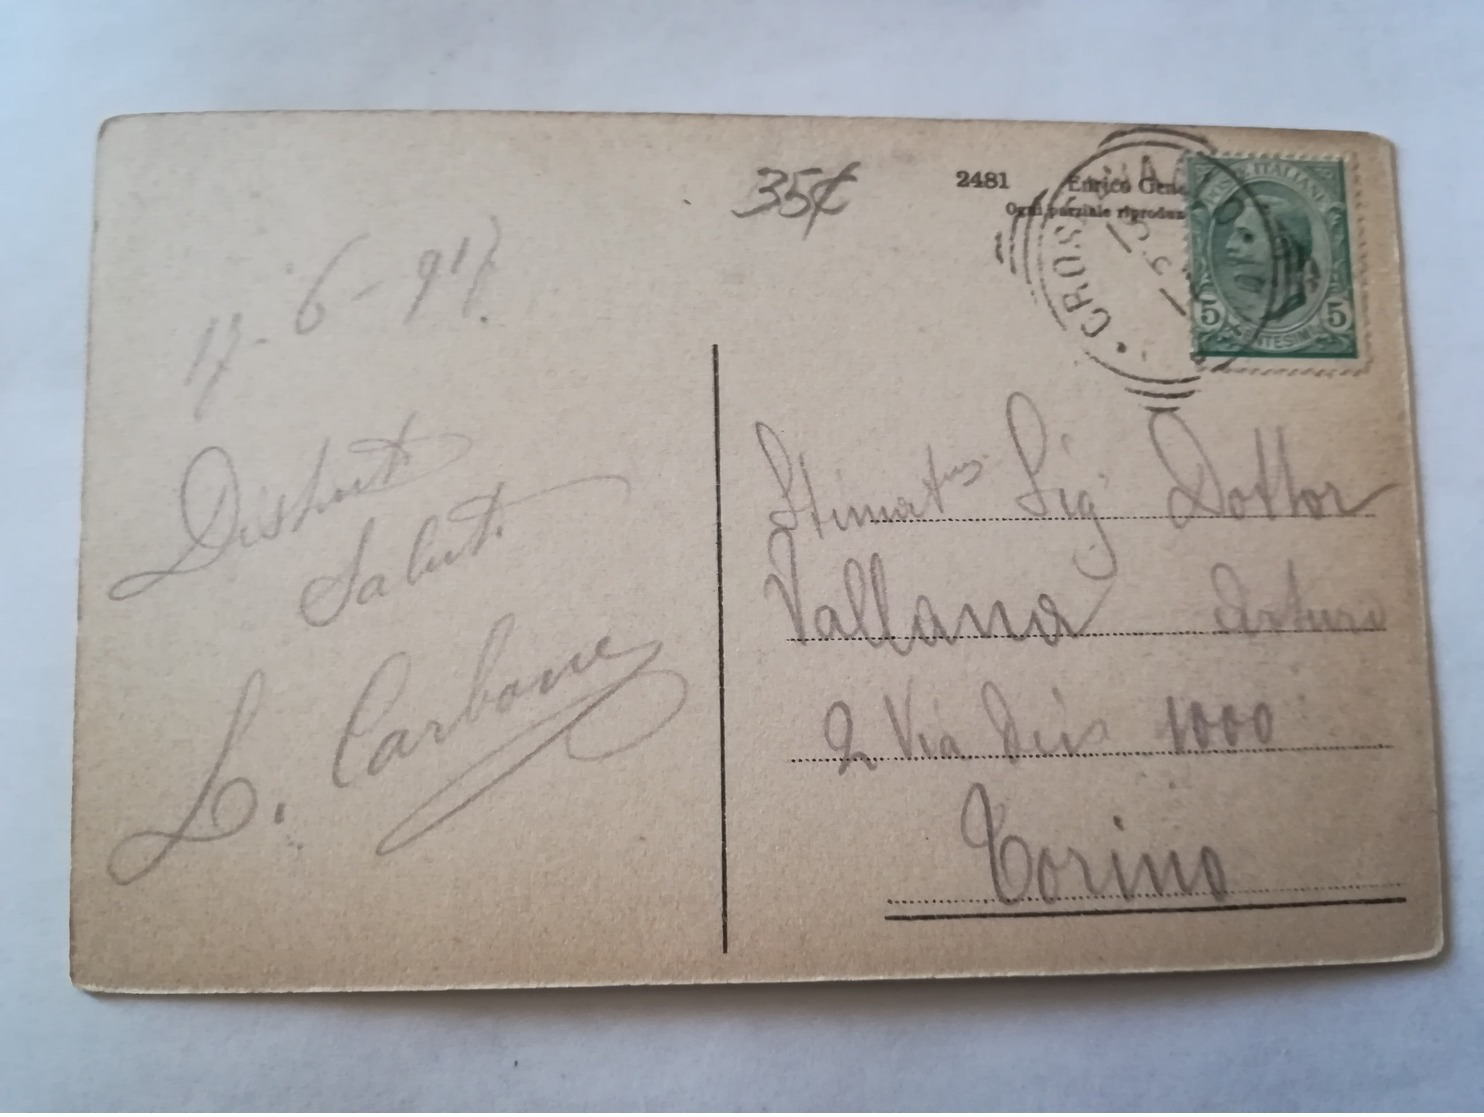 35¢
2481 Enrico Gen
Ogni parziale riproduz
POSTE ITALIANE
5 CENTESIMI 5
17-6-917.
Distinti
Saluti
L. Carbone
Stimatmo Sig Dottor
Vallana Arturo
2 Via dei 1000
Torino